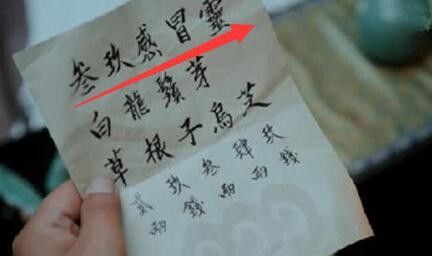 叁玖感冒靈
白龍鬚芽
草根子烏芝
貳玖叁肆玖
兩錢兩兩錢